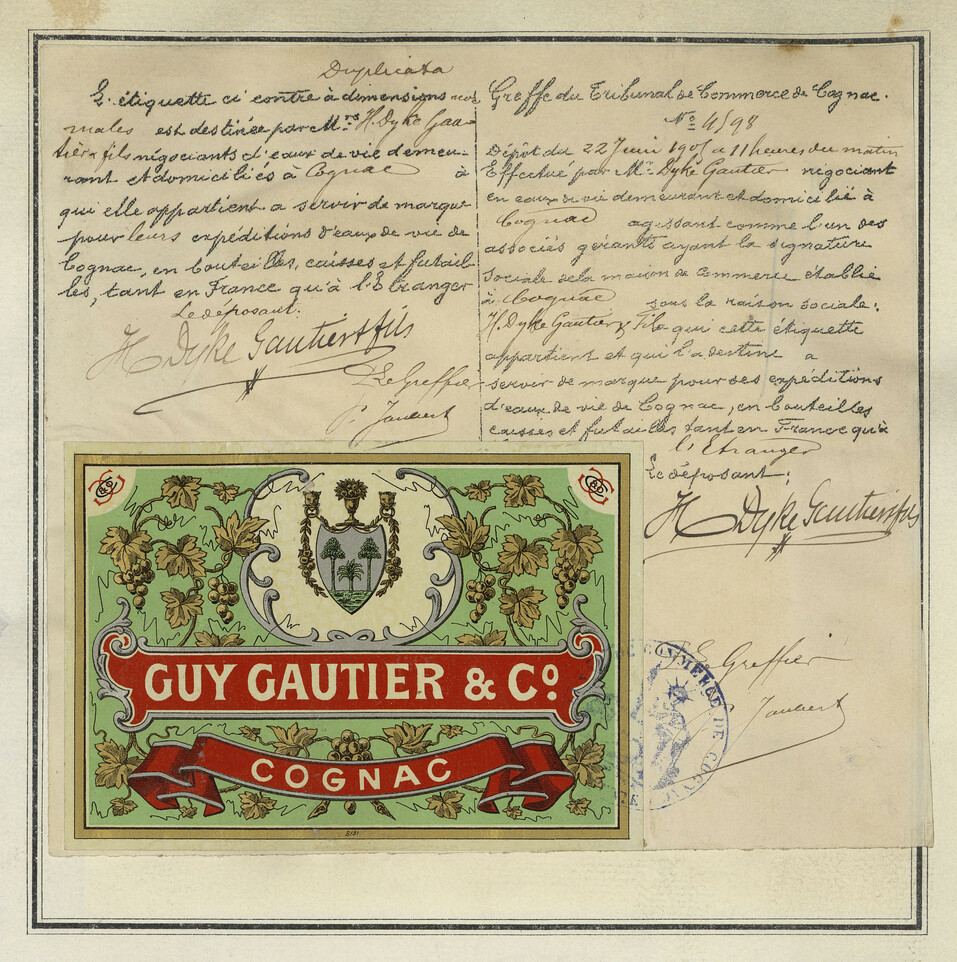 Duplicata
L'étiquette ci contre à dimensions nor
males est destinée par Mrs H. Dyke Gau
tier & fils négociants d'eaux de vie demeu-
rant et domiciliés à Cognac à
qui elle appartient a servir de marque
pour leurs expéditions d'eaux de vie de
Cognac, en bouteilles, caisses et futail
les, tant en France qu'à l'Etranger
Le déposant:
H Dyke Gautier & fils
Le Greffier
Joubert
Greffe du Tribunal de Commerce de Cognac.
No 4598
Dépôt du 22 Juin 1905 a 11 heures du matin
Effectué par Mr Dyke Gautier négociant
en eaux de vie demeurant et domicilié à
Cognac agissant comme l'un des
associés gérants ayant la signature
sociale de la maison de commerce établie
à Cognac sous la raison sociale:
H. Dyke Gautier & Fils qui cette étiquette
appartient et qui l'a destine a
servir de marque pour ses expéditions
d'eaux de vie de Cognac, en bouteilles
caisses et futailles tant en France qu'à
l'Etranger
Le déposant:
H Dyke Gautier & fils
Le Greffier
Joubert
GUY GAUTIER & Co.
COGNAC
COMMERCE DE COGNAC